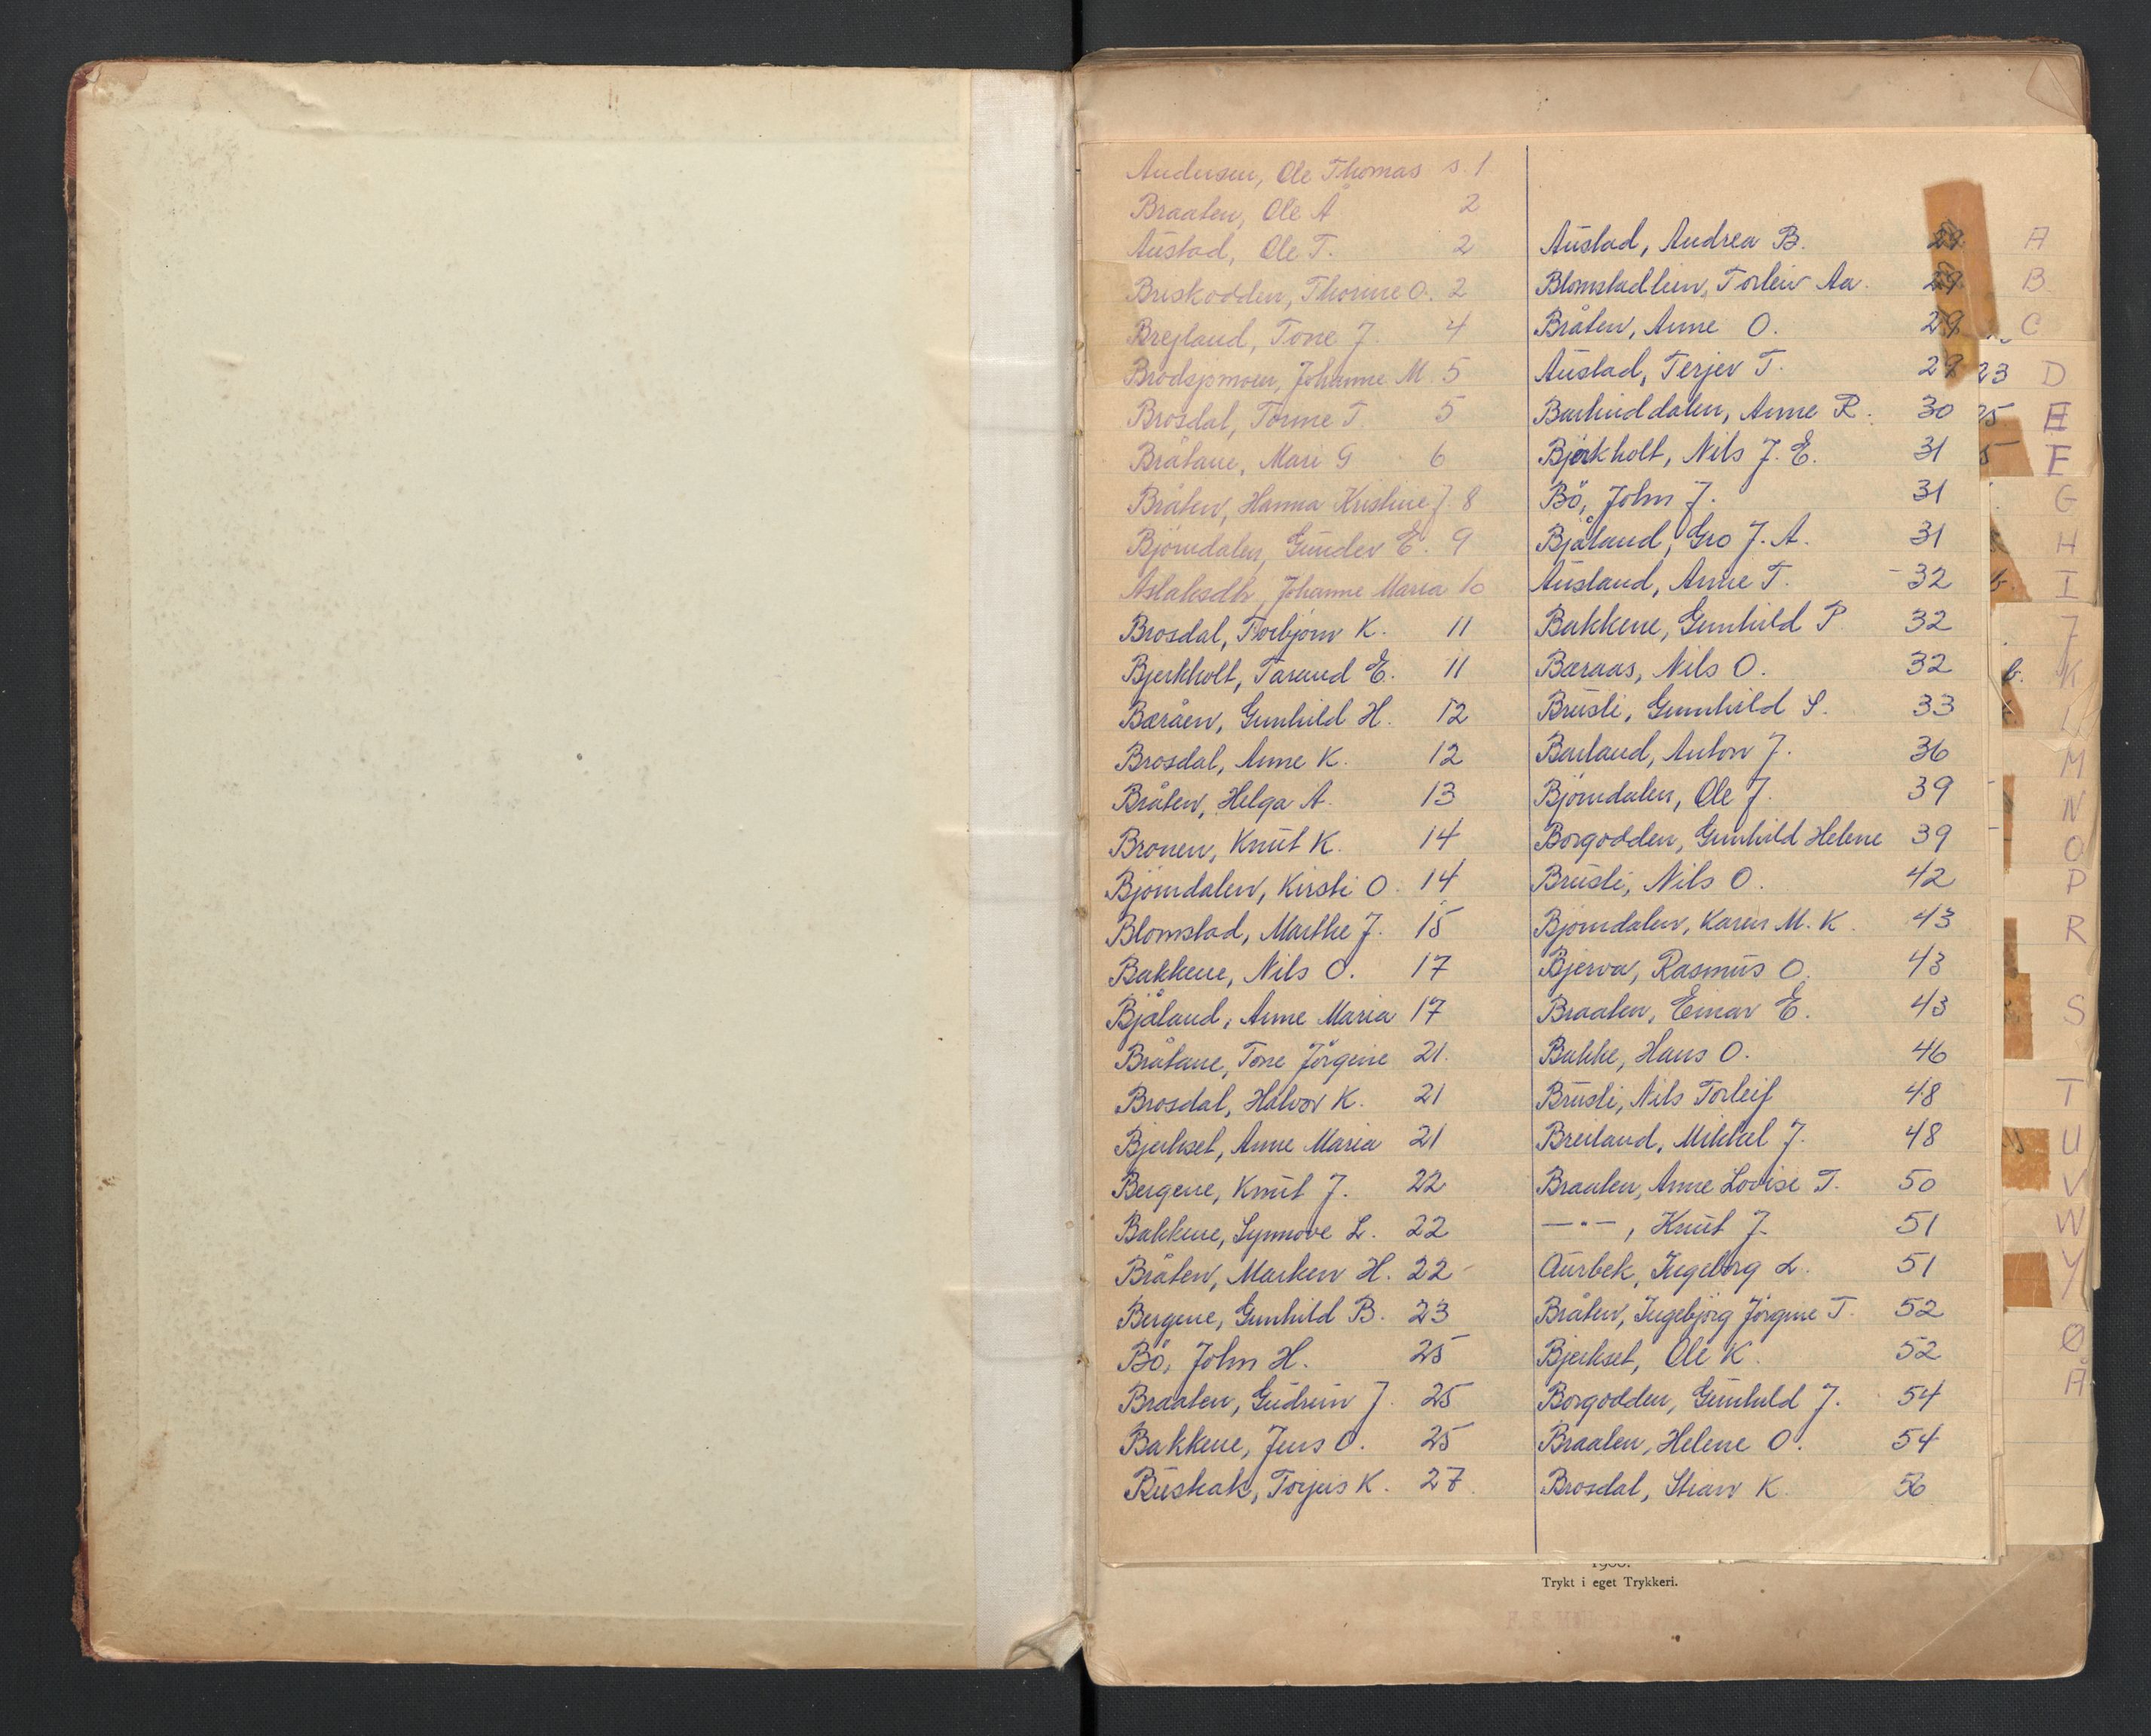 Andersen, Ole Thomas s. 1
Braaten, Ole Å 2
Austad, Ole T. 2
Breskodden, Thorine O. 2
Brejland, Tone J. 4
Brodsjomoen, Johanne M. 5
Brosdal, Tonne T. 5
Bråtane, Mari G 6
Bråten, Hanna Kristine J. 8
Björndalen, Gunder E. 9
Aslaksdtr, Johanne Maria 10
Brosdal, Torbjörn K. 11
Bjerkholt, Tarand E. 11
Bæråen, Gunhild H. 12
Brosdal, Anne K. 12
Bråten, Helga A. 13
Bronen, Knut K. 14
Björndalen, Kirsti O. 14
Blomstad, Marthe J. 15
Bakkene, Nils O. 17
Bjåland, Anne Maria 17
Bråtane, Tone Jörgine 21.
Brosdal, Halvor K. 21
Bjerkset, Anne Maria 21
Bergene, Knut J. 22
Bakkene, Synnove L. 22
Bråten, Marken H. 22
Bergene, Gunhild B. 23
Bö, John H. 25
Braaten, Gudrun J. 25
Bakkene, Jens O. 25
Buskak, Torjus K. 27.
Austad, Andrea B. 29
Blomstadlien, Torleiv Aa. 29
Bråten, Anne O. 29
Austad, Terjer T. 29
Barlinddalen, Anne R. 30
Bjørkholt, Nils J. E. 31
Bö, John J. 31
Bjåland, Gro J. A. 31
Ausland, Anne T. 32
Bakkene, Gunhild P. 32
Bæraas, Nils O. 32
Brusli, Gunhild S. 33
Barland, Anton J. 36
Björndalen, Ole J. 39
Borgodden, Gunhild Helene 39
Brusli, Nils O. 42
Björndalen, Karen M. K. 43
Bjerva, Rasmus O. 43
Braaten, Einar E. 43
Bakke, Hans O. 46
Brusli, Nils Torleif 48
Breiland, Mikkel J. 48
Braaten, Anne Lovise T. 50
—·—, Knut J. 51
Aurbek, Ingeborg L. 51
Bråten, Ingebjörg Jörgine T. 52
Bjerkset, Ole K. 52
Borgodden, Gunhild J. 54
Braaten, Helene O. 54
Brosdal, Steinar K. 56
23
25
5
A
B
C
D
E
F
G
H
I
J
K
L
M
N
O
P
R
S
T
U
V
W
Y
Ø
Å
Trykt i eget Trykkeri.